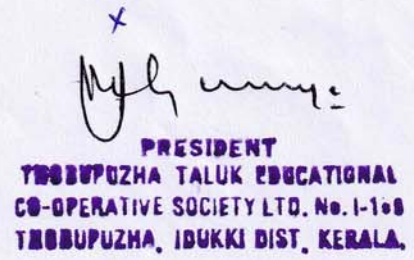 PRESIDENT
THODUPUZHA TALUK EDUCATIONAL
CO-OPERATIVE SOCIETY LTD. No. I-
THODUPUZHA, IDUKKI DIST, KERALA,